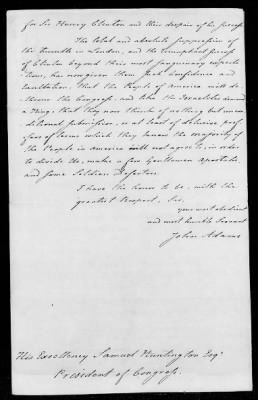 for Sir Henry Clinton and their despair of his success.
The total and absolute suppression of
the tumults in London, and the triumphant success
of Clinton beyond their most sanguinary expecta-
tions, has now given them such confidence and
exultation, that the People of America will de-
throne the Congress, and like the Israelites demand
a King, that they now think of nothing but uncon-
ditional submission, or at least of delusive prof-
fers of Terms which they know the Majority of
the People in America will not agree to, in order
to divide Us, make a few Gentlemen Apostate,
and some Soldiers Deserters.
I have the honor to be, with the
greatest Respect, Sir,
your most obedient
and most humble Servant
John Adams
His Excellency Samuel Huntington Esqr
President of Congress.